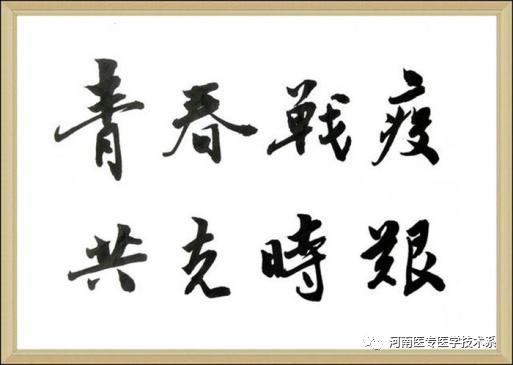 青春戰疫
共克時艱
河南医专医学技术系